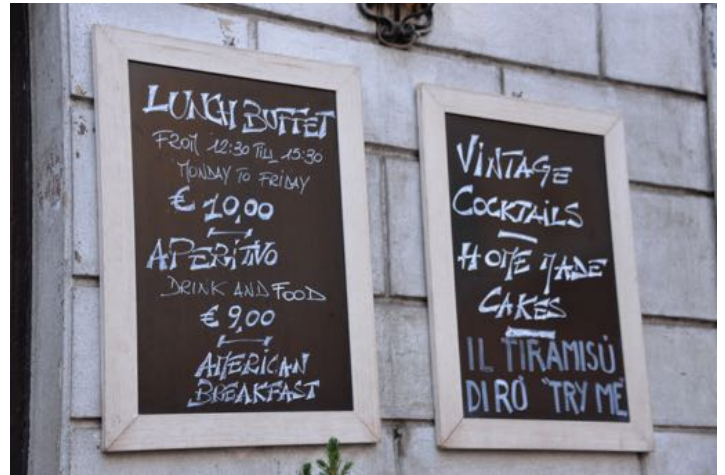 LUNCH BUFFET
FROM 12:30 TILL 15:30
MONDAY TO FRIDAY
€ 10,00
APERITIVO
DRINK AND FOOD
€ 9,00
AMERICAN
BREAKFAST
VINTAGE
COCKTAILS
HOME MADE
CAKES
IL TIRAMISÙ
DI RÒ "TRY ME"